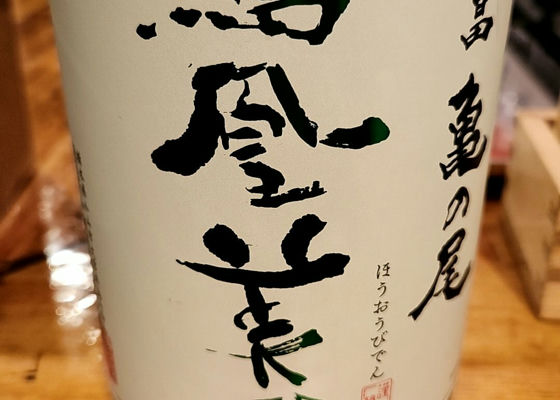 亀の尾
ほうおうびでん
鳳凰美